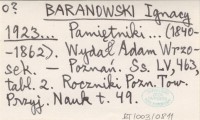 O? BARANOWSKI Ignacy
1923... Pamiętniki... (1840-
-1862). Wydał Adam Wrzo-
sek. — Poznań. Ss. LV, 463,
tabl. 2. Roczniki Pozn. Tow.
Przyj. Nauk t. 49.